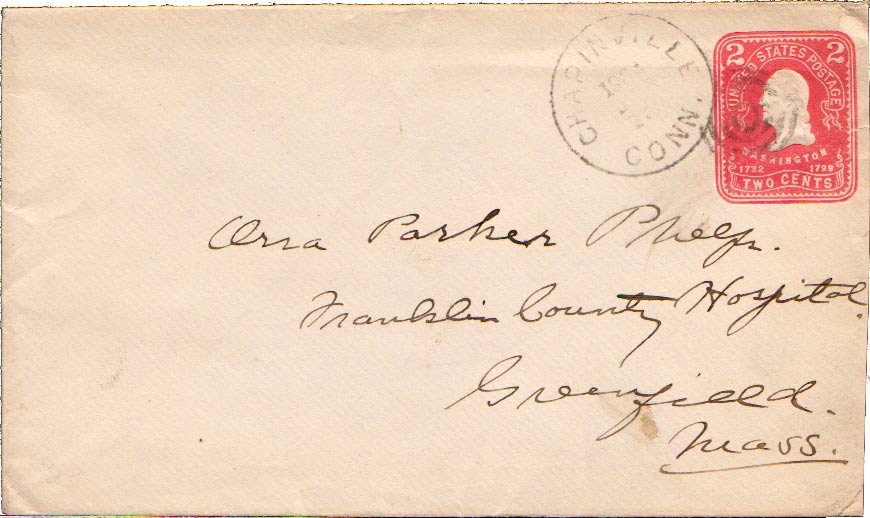 CHAPINVILLE
CONN.
2 2
UNITED STATES POSTAGE
WASHINGTON
1732 1799
TWO CENTS
Orra Parker Phelps.
Franklin County Hospital,
Greenfield.
Mass.